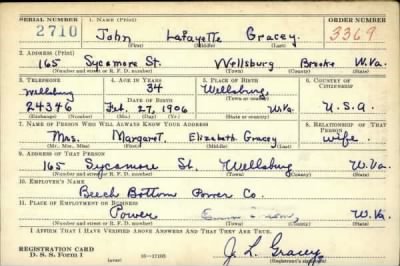 SERIAL NUMBER 1. NAME (Print) ORDER NUMBER
2710 John LaFayette Gracey. 3369
(First) (Middle) (Last)
2. ADDRESS (Print)
165 Sycamore St. Wellsburg Brooke W.Va.
(Number and street or R. F. D. number) (Town) (County) (State)
3. TELEPHONE 4. AGE IN YEARS 5. PLACE OF BIRTH 6. COUNTRY OF CITIZENSHIP
Wellsburg 34 Wellsburg,
DATE OF BIRTH (Town or county)
2434R Feb. 27, 1906 W.Va. U.S.A.
(Exchange) (Number) (Mo.) (Day) (Yr.) (State or country)
7. NAME OF PERSON WHO WILL ALWAYS KNOW YOUR ADDRESS 8. RELATIONSHIP OF THAT PERSON
Mrs. Margaret, Elizabeth Gracey wife.
(Mr., Mrs., Miss) (First) (Middle) (Last)
9. ADDRESS OF THAT PERSON
165 Sycamore St. Wellsburg W.Va.
(Number and street or R. F. D. number) (Town) (County) (State)
10. EMPLOYER'S NAME
Beech Bottom Power Co.
11. PLACE OF EMPLOYMENT OR BUSINESS
Power W.Va.
(Number and street or R. F. D. number) (Town) (County) (State)
I AFFIRM THAT I HAVE VERIFIED ABOVE ANSWERS AND THAT THEY ARE TRUE.
REGISTRATION CARD
D. S. S. Form 1 16—17105 J. L. Gracey